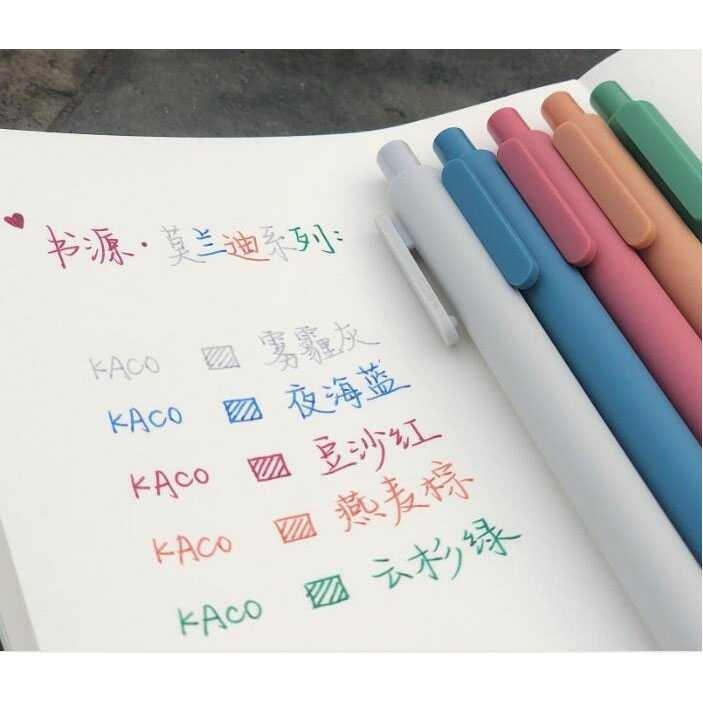 书源·莫兰迪系列:
KACO 雾霾灰
KACO 夜海蓝
KACO 豆沙红
KACO 燕麦棕
KACO 云杉绿